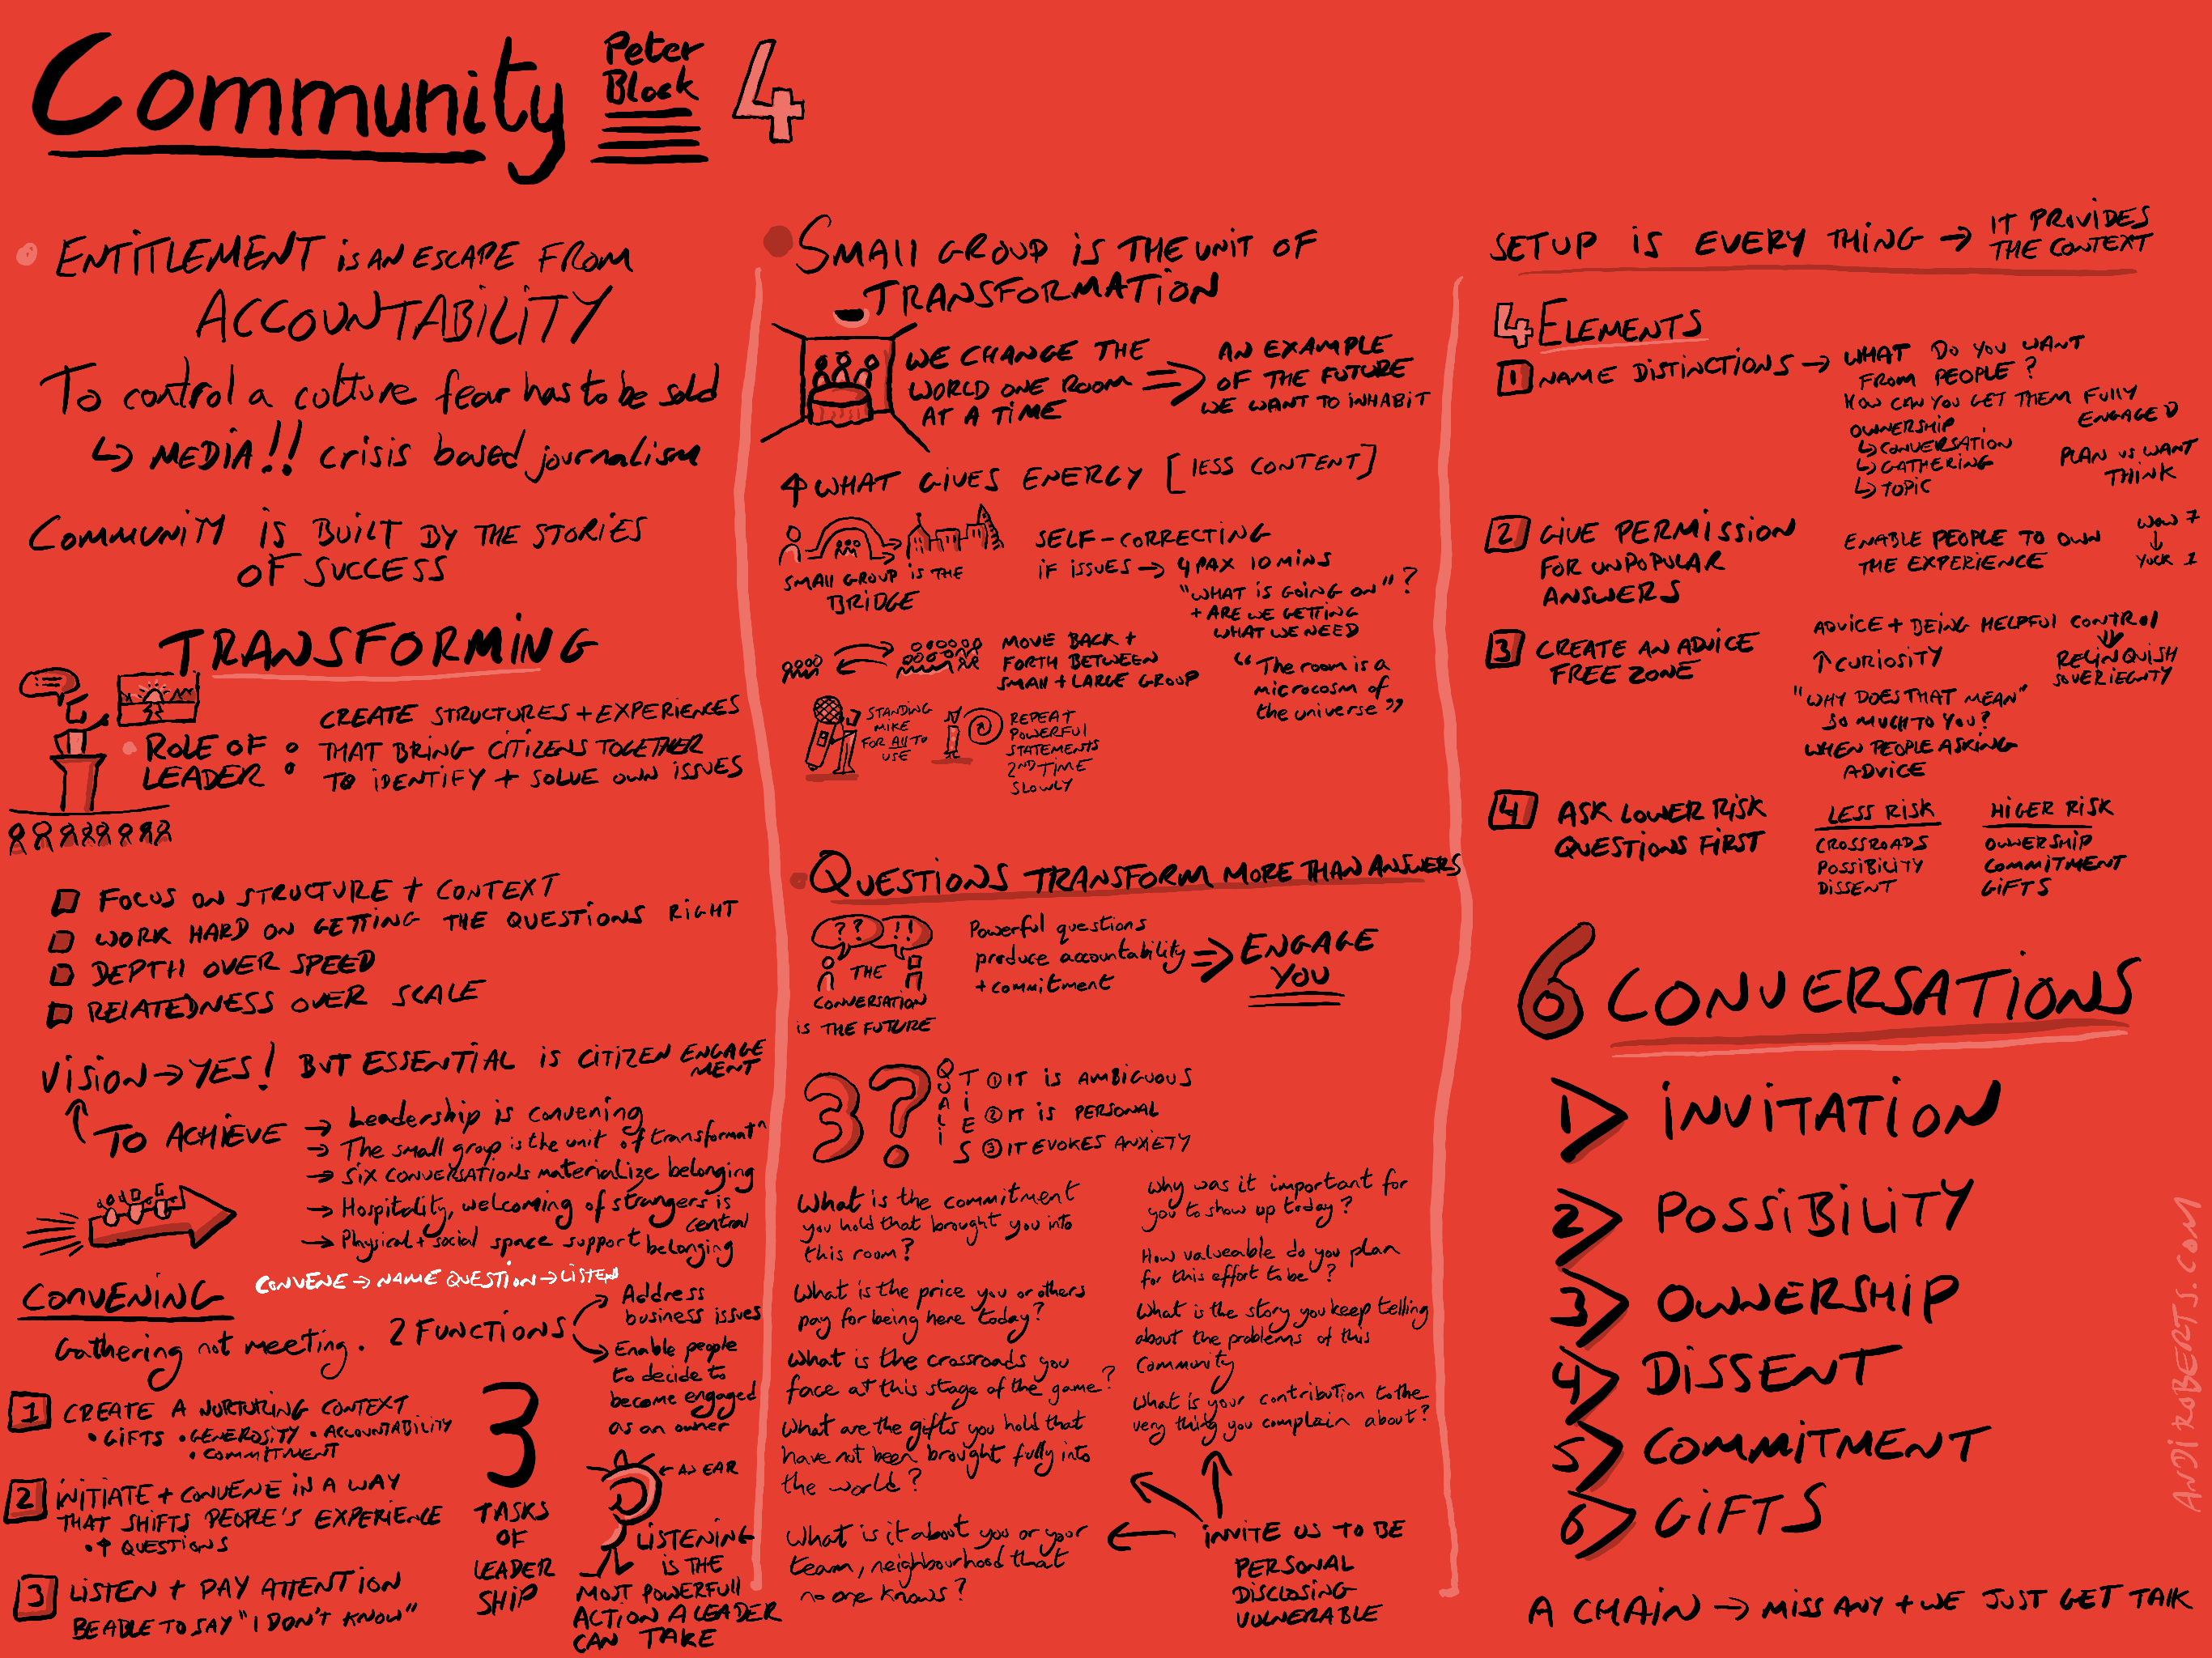 Community
Peter
Block
4
ENTITLEMENT is AN ESCAPE FROM
ACCOUNTABILITY
To control a culture fear has to be sold
↳ MEDIA!! crisis based journalism
COMMUNITY IS BUILT BY THE STORIES
OF SUCCESS
TRANSFORMING
ROLE OF
LEADER :
CREATE STRUCTURES + EXPERIENCES
THAT BRING CITIZENS TOGETHER
TO IDENTIFY + SOLVE OWN ISSUES
FOCUS ON STRUCTURE + CONTEXT
WORK HARD ON GETTING THE QUESTIONS RIGHT
DEPTH OVER SPEED
RELATEDNESS OVER SCALE
VISION → YES! BUT ESSENTIAL IS CITIZEN ENGAGE
MENT
TO ACHIEVE → Leadership is convening
→ The small group is the unit of transformatn
→ SIX CONVERSATIONS materialize belonging
→ Hospitality, welcoming of strangers is
central
→ Physical + social space support belonging
CONVENE → NAME QUESTION → LISTEN
CONVENING
Gathering not meeting. 2 FUNCTIONS
Address
business issues
Enable people
to decide to
become engaged
as an owner
1 CREATE A NURTURING CONTEXT
• GIFTS • GENEROSITY • ACCOUNTABILITY
• COMMITMENT
2 INITIATE + CONVENE IN A WAY
THAT SHIFTS PEOPLE'S EXPERIENCE
• ↑ QUESTIONS
3 LISTEN + PAY ATTENTION
BE ABLE TO SAY "I DON'T KNOW"
3
TASKS
OF
LEADER
SHIP
← AN EAR
LISTENING
IS THE
MOST POWERFULL
ACTION A LEADER
CAN TAKE
SMALL GROUP IS THE UNIT OF
TRANSFORMATION
WE CHANGE THE
WORLD ONE ROOM
AT A TIME
⇒ AN EXAMPLE
OF THE FUTURE
WE WANT TO INHABIT
↑ WHAT GIVES ENERGY [LESS CONTENT]
SMALL GROUP IS THE
BRIDGE
SELF-CORRECTING
IF ISSUES → 4 PAX 10 MINS
"WHAT IS GOING ON"?
+ ARE WE GETTING
WHAT WE NEED
MOVE BACK +
FORTH BETWEEN
SMALL + LARGE GROUP
"The room is a
microcosm of
the universe"
STANDING
MIKE
FOR All TO
USE
REPEAT
POWERFUL
STATEMENTS
2ND TIME
SLOWLY
QUESTIONS TRANSFORM MORE THAN ANSWERS
?? !!
THE
CONVERSATION
is THE FUTURE
Powerful questions
produce accountability
+ commitment
⇒ ENGAGE
YOU
3 ? QUALITIES
① IT IS AMBIGUOUS
② IT IS PERSONAL
③ IT EVOKES ANXIETY
What is the commitment
you hold that brought you into
this room?
What is the price you or others
pay for being here today?
What is the crossroads you
face at this stage of the game?
What are the gifts you hold that
have not been brought fully into
the world?
What is it about you or your
team, neighbourhood that
no one knows?
Why was it important for
you to show up today?
How valueable do you plan
for this effort to be?
What is the story you keep telling
about the problems of this
Community
What is your contribution to the
very thing you complain about?
INVITE US TO BE
PERSONAL
DISCLOSING
VULNERABLE
SETUP IS EVERY THING → IT PROVIDES
THE CONTEXT
4 ELEMENTS
1 NAME DISTINCTIONS → WHAT DO YOU WANT
FROM PEOPLE?
HOW CAN YOU GET THEM FULLY
ENGAGED
OWNERSHIP
↳ CONVERSATION
↳ GATHERING
↳ TOPIC
PLAN VS WANT
THINK
2 GIVE PERMISSION
FOR UNPOPULAR
ANSWERS
ENABLE PEOPLE TO OWN
THE EXPERIENCE
WOW 7
↓
YUCK 1
3 CREATE AN ADVICE
FREE ZONE
ADVICE + BEING HELPFUL CONTROL
⇓
RELINQUISH
SOVERIEGNTY
↑ CURIOSITY
"WHY DOES THAT MEAN"
SO MUCH TO YOU?
WHEN PEOPLE ASKING
ADVICE
4 ASK LOWER RISK
QUESTIONS FIRST
LESS RISK
CROSSROADS
POSSIBILITY
DISSENT
HIGER RISK
OWNERSHIP
COMMITMENT
GIFTS
6 CONVERSATIONS
1> INVITATION
2> POSSIBILITY
3> OWNERSHIP
4> DISSENT
5> COMMITMENT
6> GIFTS
A CHAIN → MISS ANY + WE JUST GET TALK
ANDIROBERTS.COM